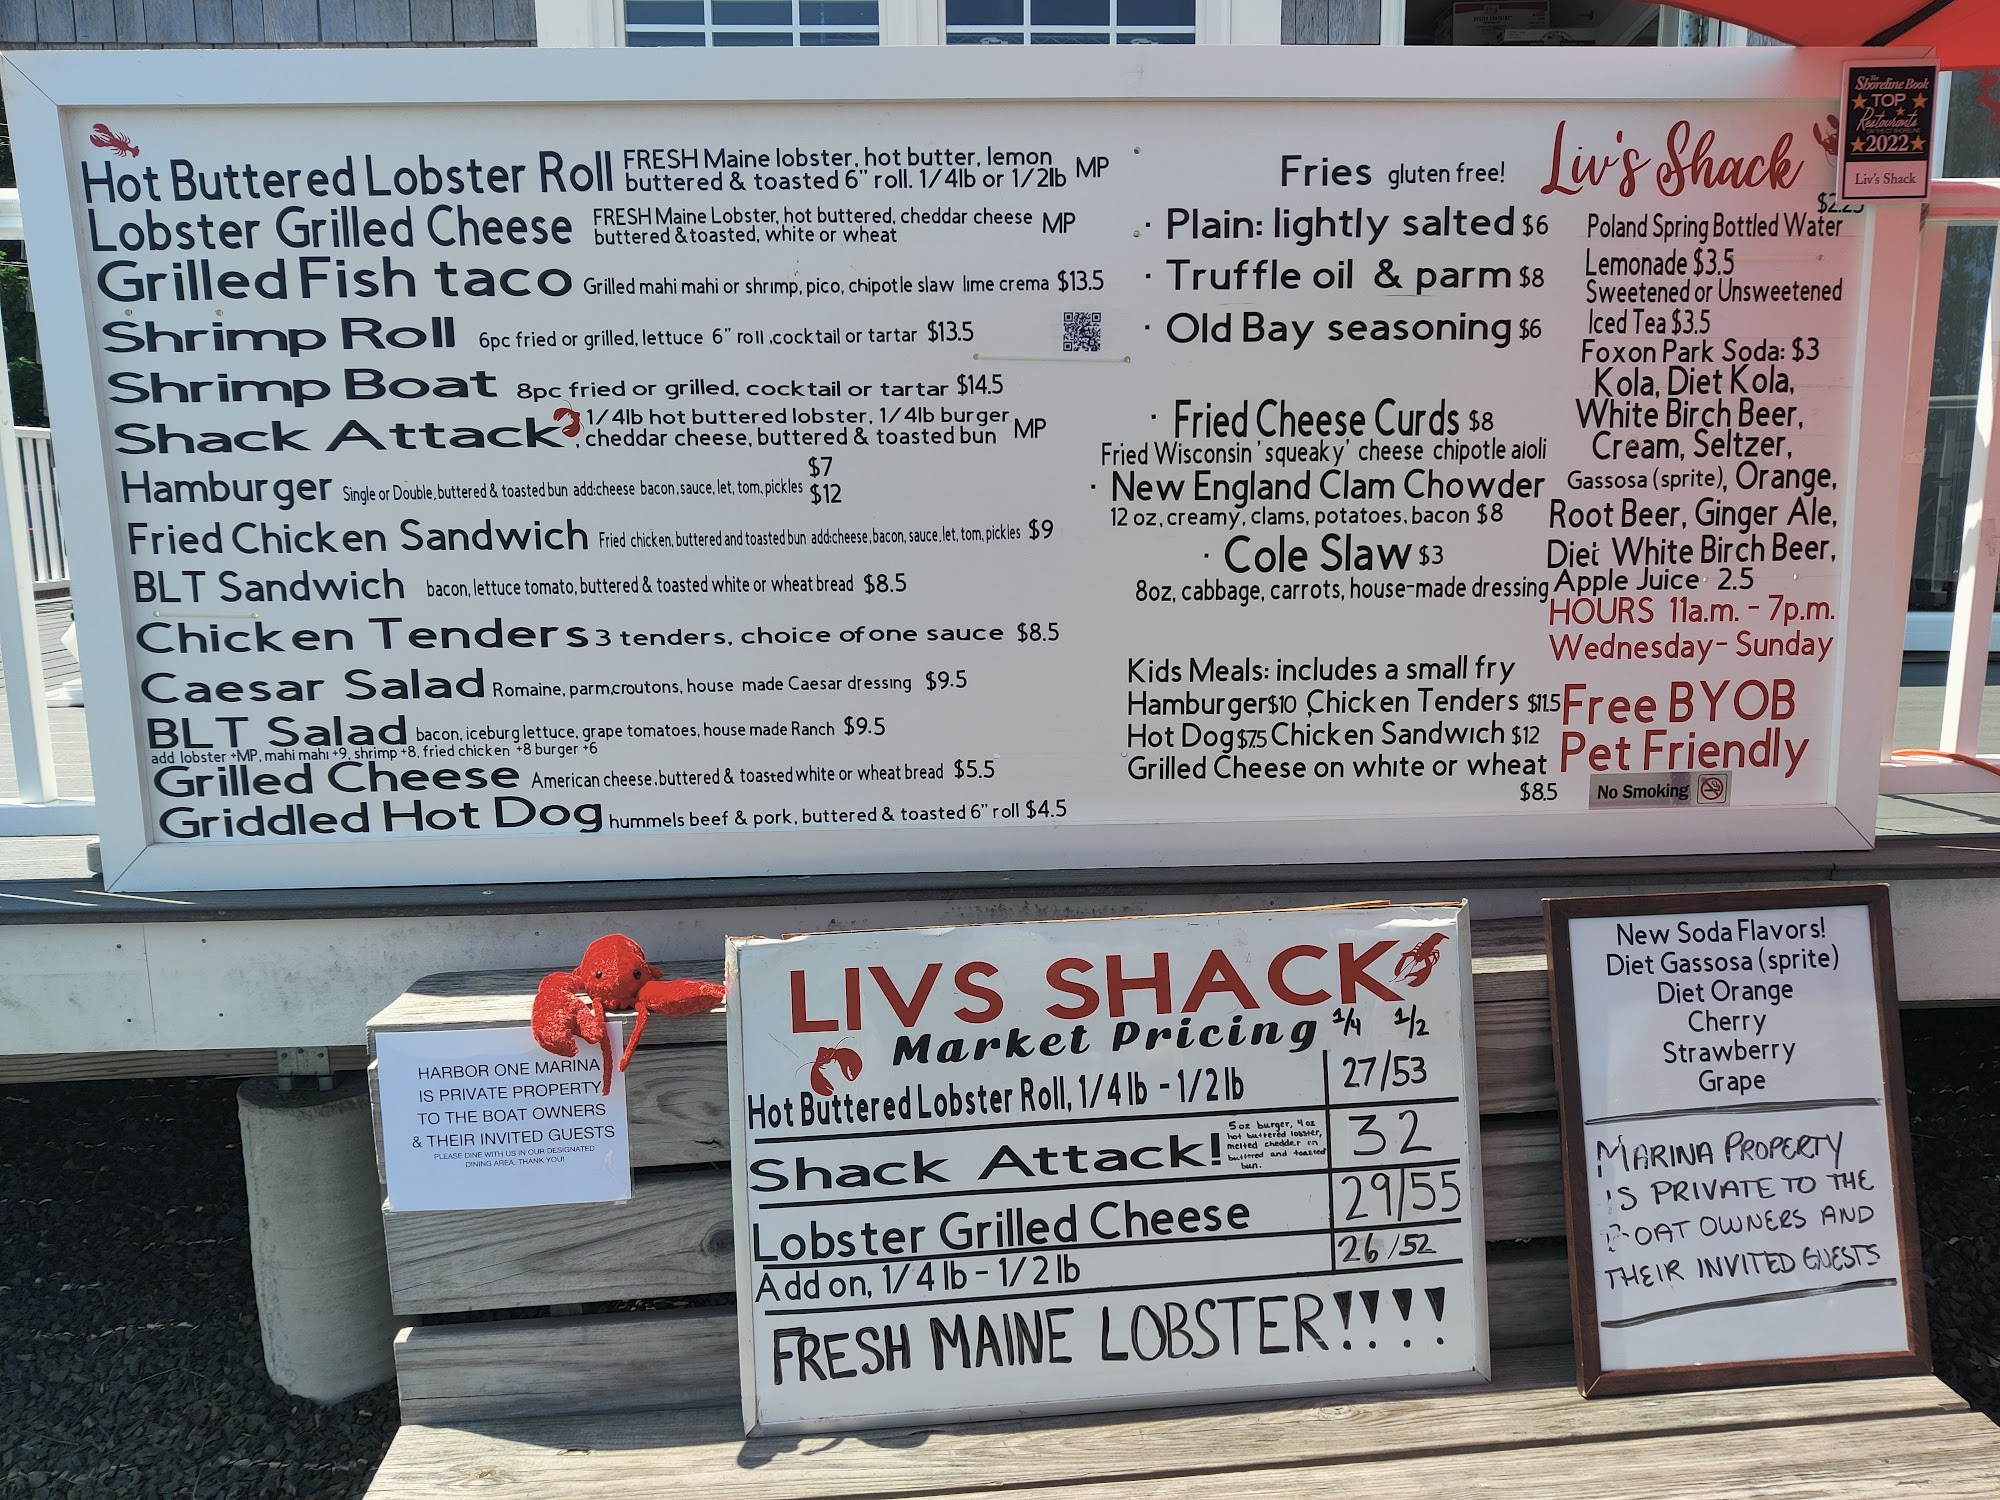 Hot Buttered Lobster Roll FRESH Maine lobster, hot butter, lemon
buttered & toasted 6" roll. 1/4lb or 1/2lb MP
Lobster Grilled Cheese FRESH Maine Lobster, hot buttered, cheddar cheese
buttered & toasted, white or wheat MP
Grilled Fish taco Grilled mahi mahi or shrimp, pico, chipotle slaw lime crema $13.5
Shrimp Roll 6pc fried or grilled, lettuce 6" roll .cocktail or tartar $13.5
Shrimp Boat 8pc fried or grilled, cocktail or tartar $14.5
Shack Attack 1/4lb hot buttered lobster, 1/4lb burger
, cheddar cheese, buttered & toasted bun MP
Hamburger Single or Double, buttered & toasted bun add:cheese bacon, sauce, let, tom, pickles $7
$12
Fried Chicken Sandwich Fried chicken, buttered and toasted bun add:cheese, bacon, sauce, let, tom, pickles $9
BLT Sandwich bacon, lettuce tomato, buttered & toasted white or wheat bread $8.5
Chicken Tenders 3 tenders, choice of one sauce $8.5
Caesar Salad Romaine, parm,croutons, house made Caesar dressing $9.5
BLT Salad bacon, iceburg lettuce, grape tomatoes, house made Ranch $9.5
add lobster +MP, mahi mahi +9, shrimp +8, fried chicken +8 burger +6
Grilled Cheese American cheese, buttered & toasted white or wheat bread $5.5
Griddled Hot Dog hummels beef & pork, buttered & toasted 6" roll $4.5
Fries gluten free!
· Plain: lightly salted $6
· Truffle oil & parm $8
· Old Bay seasoning $6
· Fried Cheese Curds $8
Fried Wisconsin 'squeaky' cheese chipotle aioli
· New England Clam Chowder
12 oz, creamy, clams, potatoes, bacon $8
· Cole Slaw $3
8oz, cabbage, carrots, house-made dressing
Kids Meals: includes a small fry
Hamburger $10 Chicken Tenders $11.5
Hot Dog $7.5 Chicken Sandwich $12
Grilled Cheese on white or wheat
$8.5
Liv's Shack
$2.25
Poland Spring Bottled Water
Lemonade $3.5
Sweetened or Unsweetened
Iced Tea $3.5
Foxon Park Soda: $3
Kola, Diet Kola,
White Birch Beer,
Cream, Seltzer,
Gassosa (sprite), Orange,
Root Beer, Ginger Ale,
Diet White Birch Beer,
Apple Juice 2.5
HOURS 11a.m. - 7p.m.
Wednesday - Sunday
Free BYOB
Pet Friendly
No Smoking
The
Shoreline Book
TOP
Restaurants
ON THE CT SHORELINE
2022
Liv's Shack
HARBOR ONE MARINA
IS PRIVATE PROPERTY
TO THE BOAT OWNERS
& THEIR INVITED GUESTS
PLEASE DINE WITH US IN OUR DESIGNATED
DINING AREA. THANK YOU!
LIVS SHACK
Market Pricing 1/4 1/2
Hot Buttered Lobster Roll, 1/4 lb - 1/2 lb 27/53
Shack Attack! 5 oz burger, 4 oz
hot buttered lobster,
melted cheddar on
buttered and toasted
bun. 32
Lobster Grilled Cheese 29/55
Add on, 1/4 lb - 1/2 lb 26/52
FRESH MAINE LOBSTER!!!!
New Soda Flavors!
Diet Gassosa (sprite)
Diet Orange
Cherry
Strawberry
Grape
MARINA PROPERTY
IS PRIVATE TO THE
BOAT OWNERS AND
THEIR INVITED GUESTS